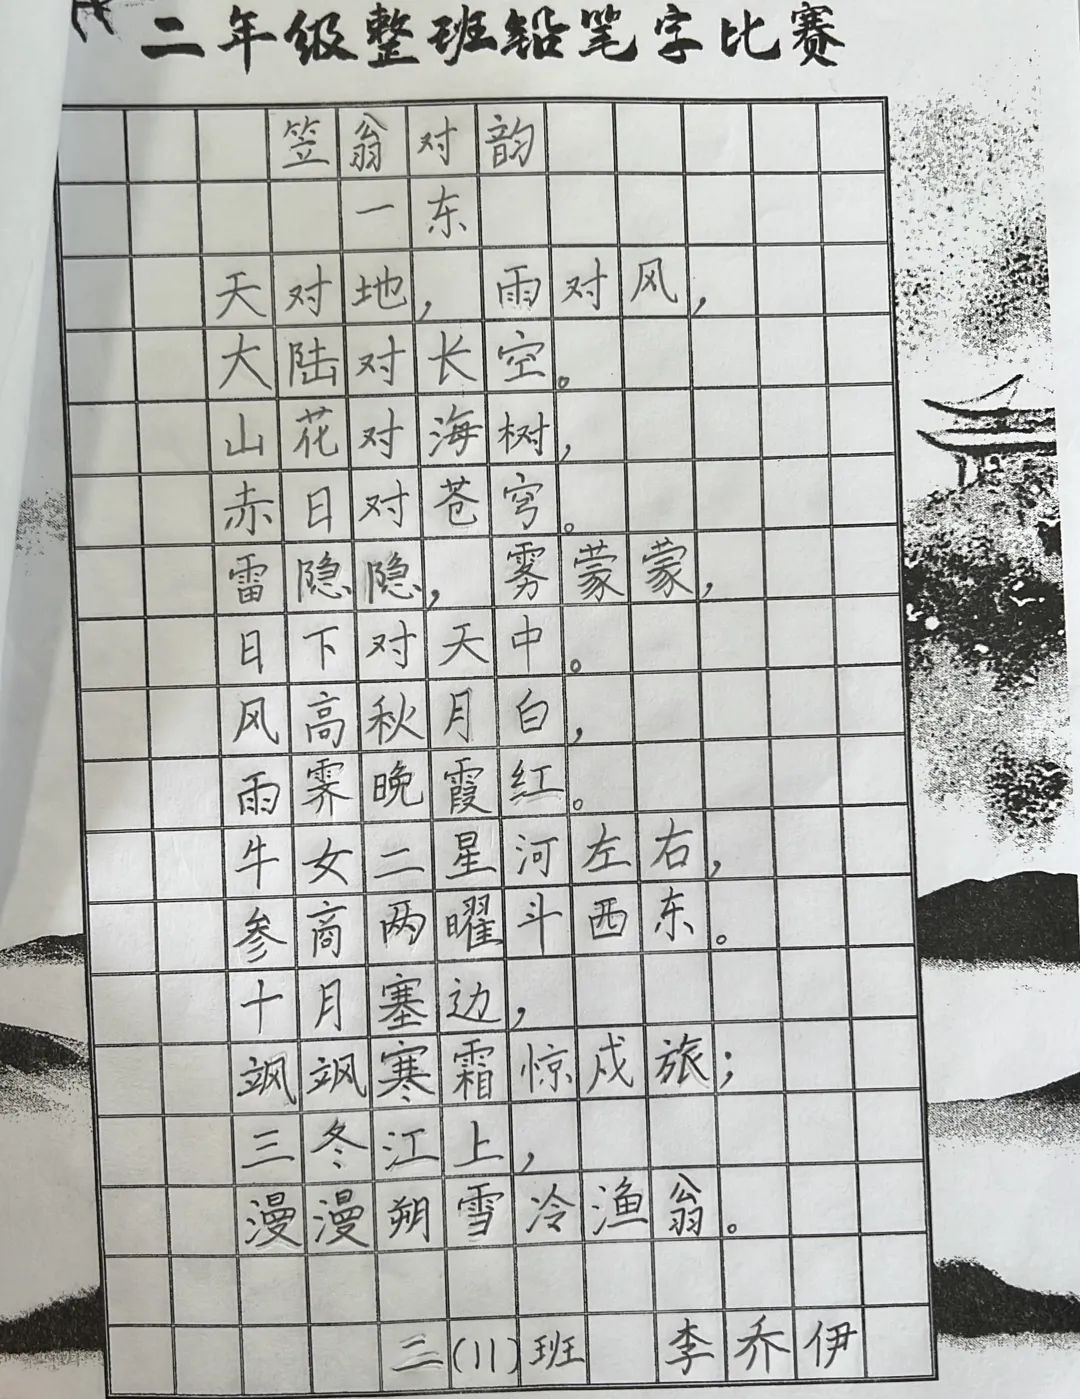 二年级整班铅笔字比赛
笠翁对韵
一东
天对地，雨对风，
大陆对长空。
山花对海树，
赤日对苍穹。
雷隐隐，雾蒙蒙，
日下对天中。
风高秋月白，
雨霁晚霞红。
牛女二星河左右，
参商两曜斗西东。
十月塞边，
飒飒寒霜惊戍旅；
三冬江上，
漫漫朔雪冷渔翁。
二(11)班 李乔伊